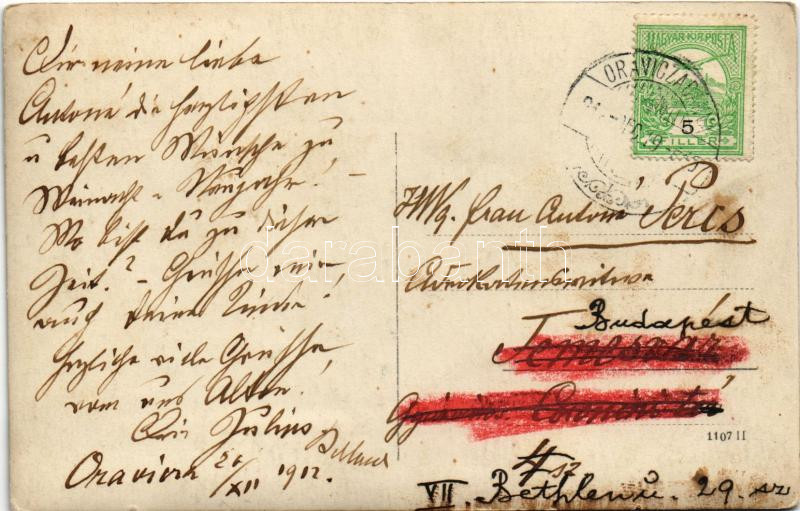 Dir meine liebe
Antone die herzligsten
u besten Wünsche zu
Weinacht - Neujahr! -
Wo bist du zu dieser
Zeit? - Grüsse mir
auch deine Kinder!
Herzliche viele Grüsse
von uns Allen!
Julius
Oravicza 21/XII 1912.
MAGYAR KIR. POSTA
5
FILLÉR
ORAVICZA
Frau Antone Percs
Advokatenswitwe
Budapest
Temesvár
1107 II
VII. Bethlen u. 29. sz
darabanth